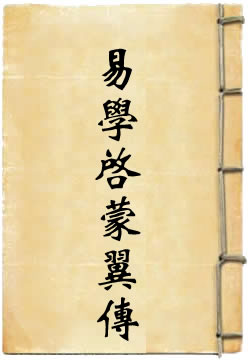 易學啓蒙翼傳